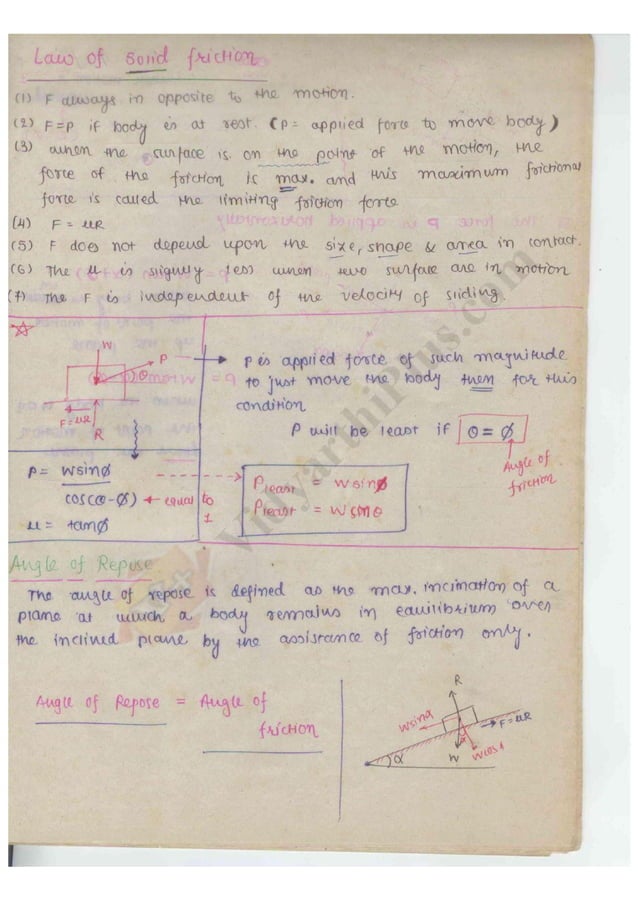 Law of Solid friction
(1) F always in opposite to the motion.
(2) F=P if body is at rest. (P= applied force to move body)
(3) when the surface is on the point of the motion, the
force of the friction is max. and this maximum frictional
force is called the limiting friction force
(4) F = μR
(5) F does not depend upon the size, shape & area in contact.
(6) The μ is slightly less when two surface are in motion
(7) The F is independent of the velocity of sliding.
W
P
θ
F=μR
R
P is applied force of such magnitude
to just move the body then for this
condition
P will be least if θ = φ
Angle of
friction
P = Wsinφ
cos(θ-φ) ← equal to
1
μ = tanφ
Pleast = Wsinφ
Pleast = Wsinθ
Angle of Repose
The angle of repose is defined as the max. inclination of a
plane at which a body remains in equilibrium over
the inclined plane by the assistance of friction only.
Angle of Repose = Angle of
friction
R
Wsinα
F=μR
α
W
α
VidyarthiPlus.com